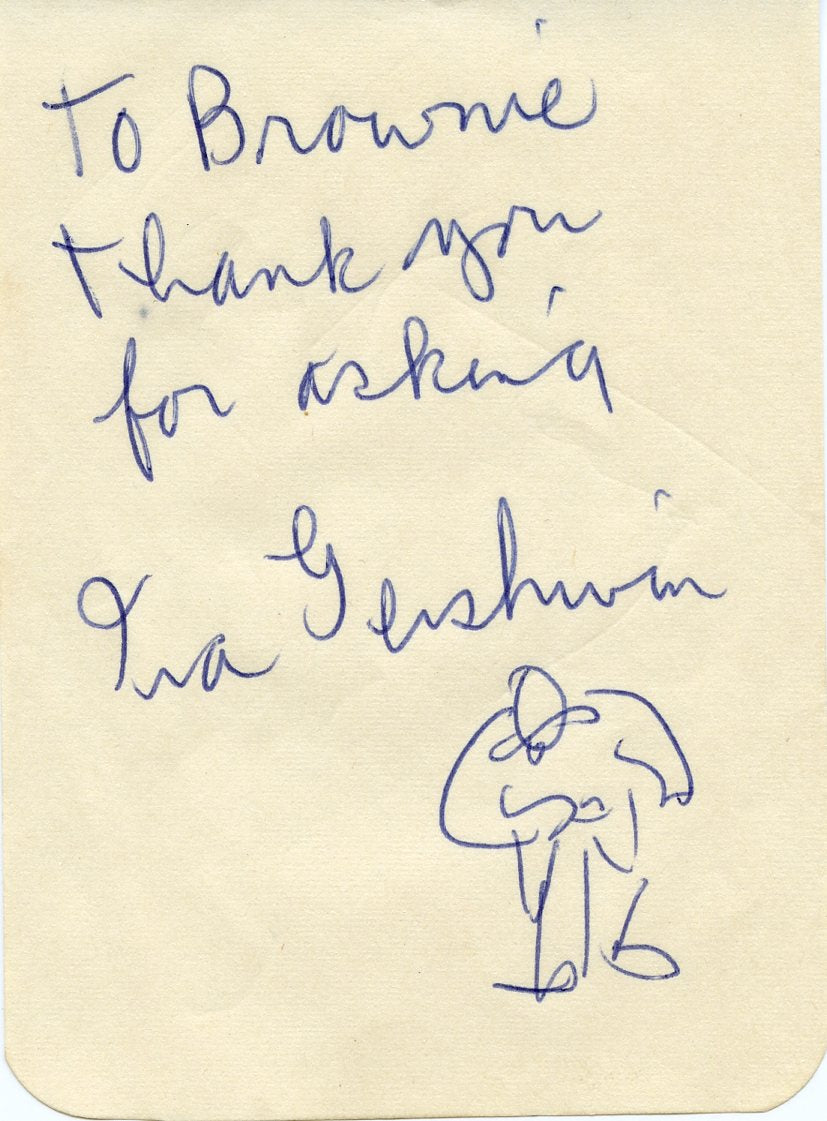 To Brownie
thank you
for asking
Ira Gershwin